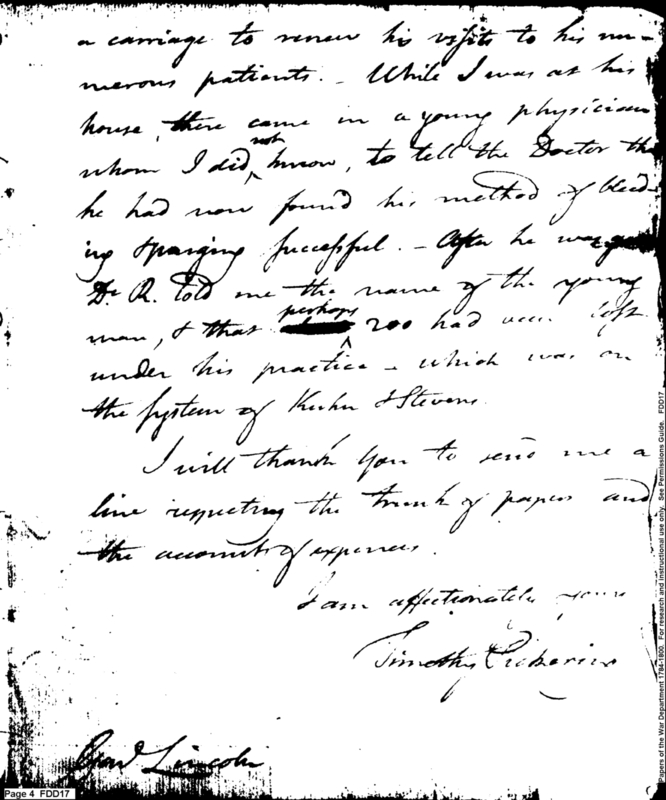 a carriage to renew his visits to his nu-
merous patients. - While I was at his
house, there came in a young physician
whom I did not know, to tell the Doctor tha
he had now found his method of bleed-
ing & purging successful. - After he was
Dr. R. told me the name of the young
man, & that perhaps 200 had been lost
under his practice - which was on
the system of Kuhn & Stevens.
I will thank you to send me a
line respecting the trunk of papers and
the accounts of expences.
I am affectionately yours
Timothy Pickering
Genl Lincoln
Page 4 FDD17
Papers of the War Department 1784-1800. For research and instructional use only. See Permissions Guide. FDD17